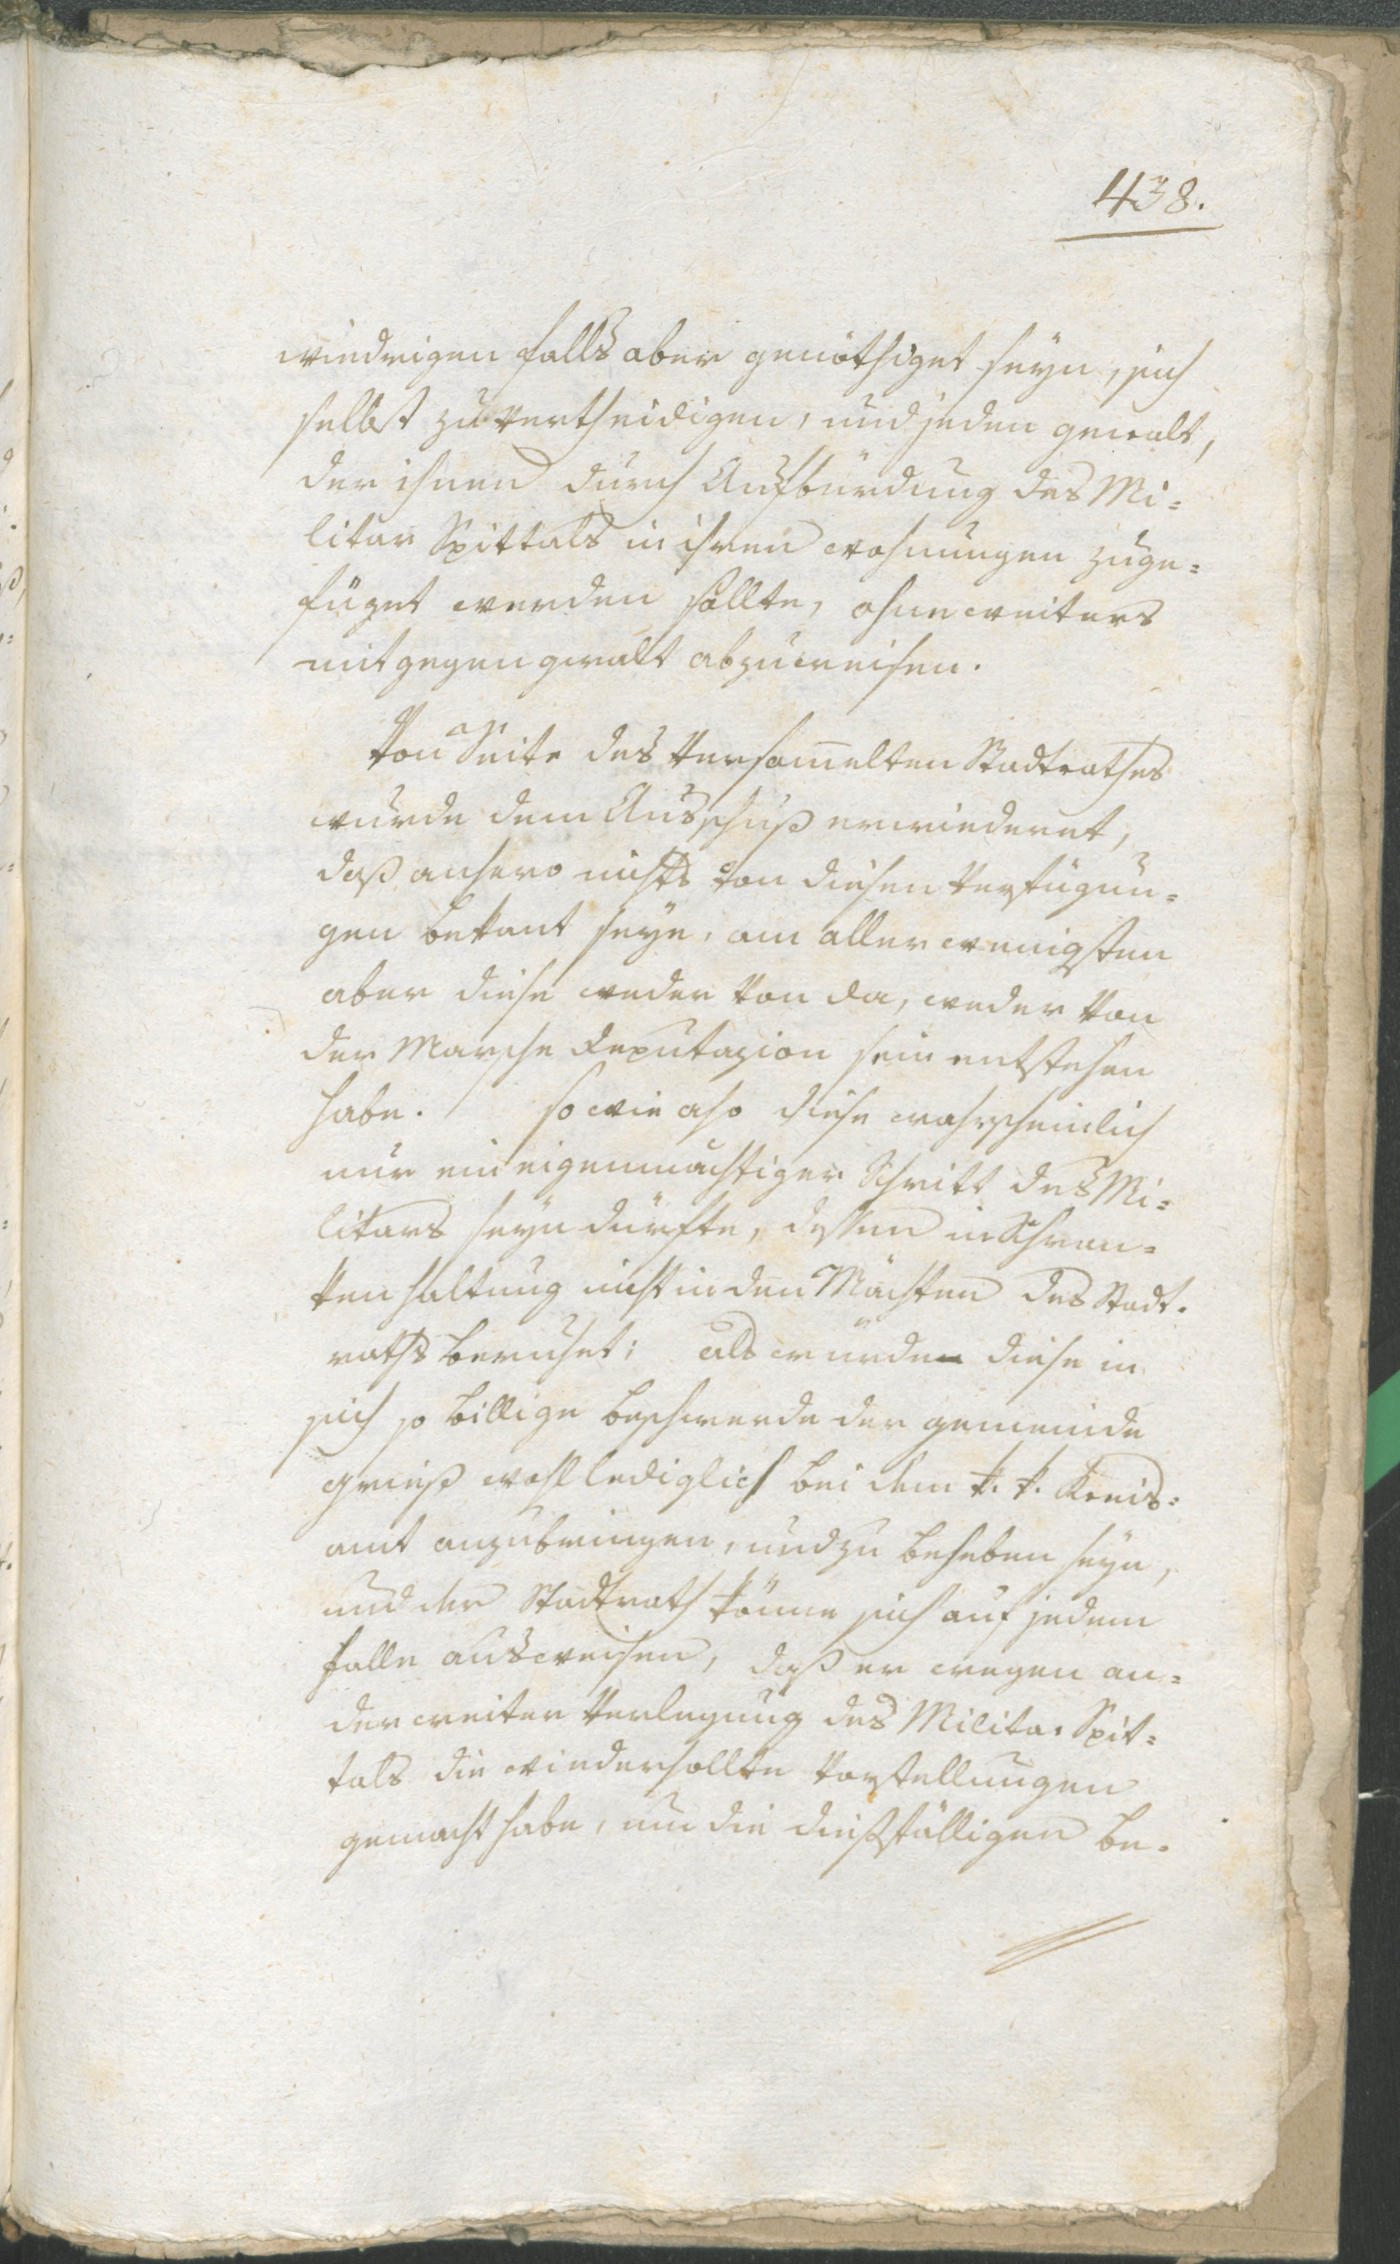 438.
wiedrigen falls aber genöthiget seyn, sich
selbst zu vertheidigen, und jeden gewalt,
der ihnen durch Aufbürdung des Mi=
litar Spittals in ihren wohnungen zuge=
füget werden sollte, ohne weiters
mit gegen gwalt abzuweisen.
Von Seite des Versam̅elten Stadtrathes
wurde dem Ausschuß erwiederet,
daß anhero nichts von diesen Verfügun=
gen bekant seye, am aller wenigsten
aber diese weder von da, weder von
der Marsche Deputazion sein entstehen
habe. So wie also diese wahrscheinlich
nur ein eigenmächtiger Schritt des Mi=
litars seyn dürfte, dessen in Schran=
ken haltung nicht in den Mächten des Stadt=
raths beruhet; als würde diese in
sich so billige beschwerde der gemeinde
gries wohl lediglich bei dem k. k. Kreis=
amt anzubringen, und zu beheben seyn,
und der Stadtrath könne sich auf jedem
falle ausweisen, daß er wegen an=
derweiter Verlegung des Militar Spit=
tals die wiedersollte Vorstellungen
gemacht habe, um die diesfälligen be=